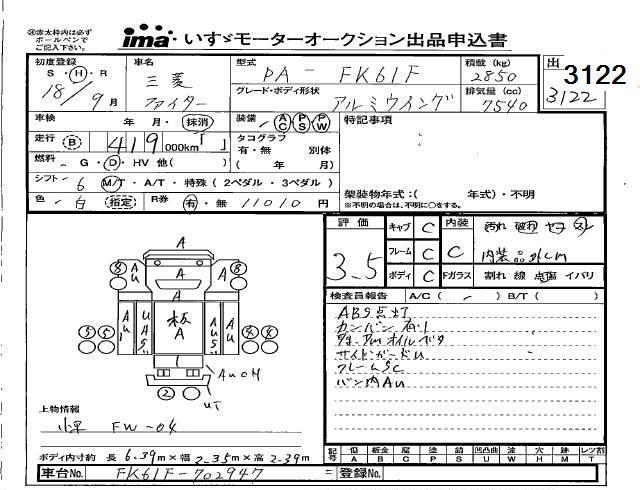 ※赤太枠内は必ず
ボールペンで
ご記入下さい。
ima・いすゞモーターオークション出品申込書
初度登録 車名 型式 積載 (kg) 出
S・H・R 三菱 PA-FK61F 2850 3122
18/9月 ファイター グレード・ボディ形状 排気量 (cc) 3122
アルミウイング 7540
車検 年・月・抹消 装備 AC PS PW 特記事項
走行 B 419,000km「 」 タコグラフ
有・無 別体
燃料 G・D・HV 他( ) ( 年 月)
シフト 6 M/T・A/T・特殊(2ペダル・3ペダル) 架装物年式:( 年式)・不明
※不明の場合は、不明に○をする。
色 白 (指定) R券 有・無 11010円
評価 キャブ C 内装 汚れ 破れ ヤコ ス
3.5 フレーム C C 内装品外しM
ボディ C Fガラス 割れ 線 点傷 イバリ
検査員報告 A/C( - )・B/T( )
ABS点灯
カンバン有り
オイル
サイドガードU
フレームSC
バン内AU
A
8 8
A
AU UAS 板A AUS AU
5 5 4 4
AUOM
2 UT
上物情報
FW-04
ボディ内寸約 長 6.39m×幅 2.35m×高 2.39m
記号 傷 A 板金 B 腐 C 塗 P 錆 S 凹凸曲 U 波 W 穴 H 跡 M レツ割 T
車台No. FK61F-702947 = 登録No.